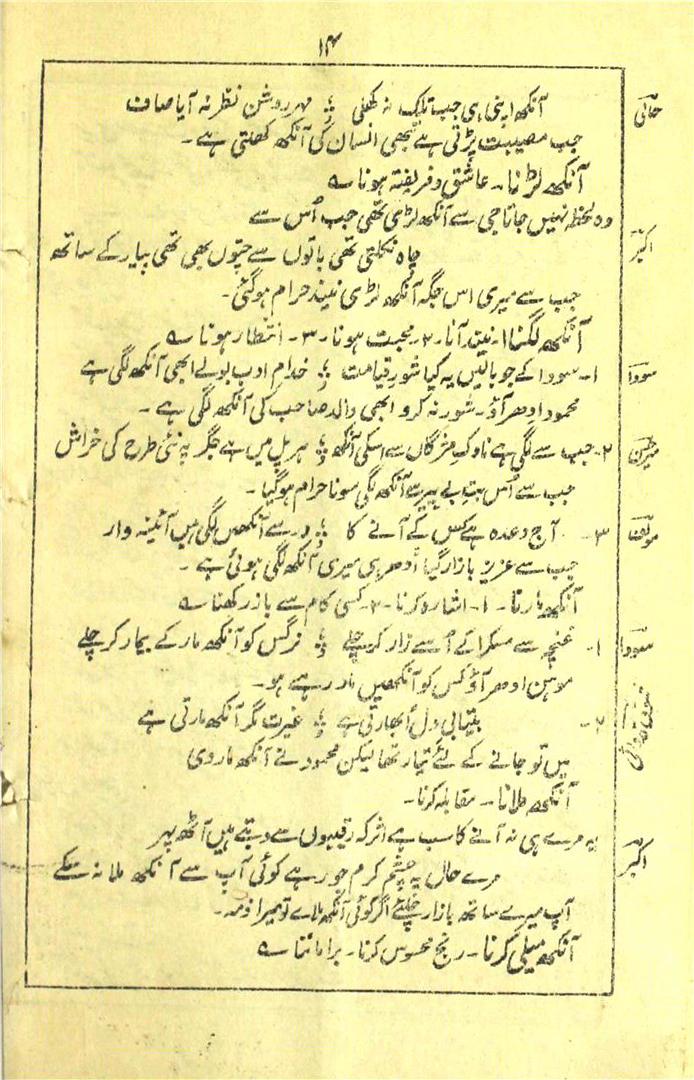 ۱۴
حالی
آنکھ اپنی ہی جب تلک نہ کھلی ؛ مہر روشن نظر نہ آیا صاف
جب مصیبت پڑتی ہے تبھی انسان کی آنکھ کھلتی ہے ۔
آنکھ لڑنا ۔ عاشق و فریفتہ ہونا ؎
وہ لحظہ نہیں جاتا جی سے آنکھ لڑی تھی جب اُس سے
اکبر
چاہ نکلتی تھی باتوں سے چتون بھی تھی پیار کے ساتھ
جب سے میری اس جگہ آنکھ لڑی نیند حرام ہوگئی ۔
آنکھ لگنا ۱۔ نیند آنا ۔ ۲۔ محبت ہونا ۔ ۳۔ انتظار ہونا ؎
سودا
۱۔ سودا کے جو بالیں پہ گیا شور قیامت ؛ خدام ادب بولے ابھی آنکھ لگی ہے
محمود ادھر آؤ ۔ شور نہ کرو ابھی والد صاحب کی آنکھ لگی ہے ۔
میرحسن
۲۔ جب سے لگی ہے ناوک مژگاں سے اسکی آنکھ ؛ ہر پل میں ہے جگر پہ نئی طرح کی خراش
جب سے اُس بت بے پیر سے آنکھ لگی سونا حرام ہوگیا ۔
مولفنا
۳۔ آج وعدہ ہے کس کے آنے کا ؛ در سے آنکھیں لگی ہیں آئینہ وار
جب سے عزیز بازار گیا اُدھر ہی میری آنکھ لگی ہوئی ہے ۔
آنکھ مارنا ۔ ۱۔ اشارہ کرنا ۔ ۲۔ کسی کام سے باز رکھنا ؎
سودا
۱۔ غنچہ سے مسکرا کے اُسے زار کر چلے ؛ نرگس کو آنکھ مار کے بیمار کر چلے
موہن ادھر آؤ کس کو آنکھیں مار رہے ہو ۔
۲۔ بیتابی دل اُبھارتی ہے ؛ غیرت مگر آنکھ مارتی ہے
میں تو جانے کے لئے تیار تھا لیکن محمود نے آنکھ مار دی
آنکھ ملانا ۔ مقابلہ کرنا ۔
اکبر
یہ مرے ہی نہ آنے کا سب ہے اثر کہ رقیبوں سے دبتے ہیں آٹھ پہر
مرے حال پہ چشم کرم جو رہے کوئی آپ سے آنکھ ملا نہ سکے
آپ میرے ساتھ بازار چلئے اگر کوئی آنکھ ملائے تو میرا ذمہ ۔
آنکھ میلی کرنا ۔ رنج محسوس کرنا ۔ برا ماننا ؎